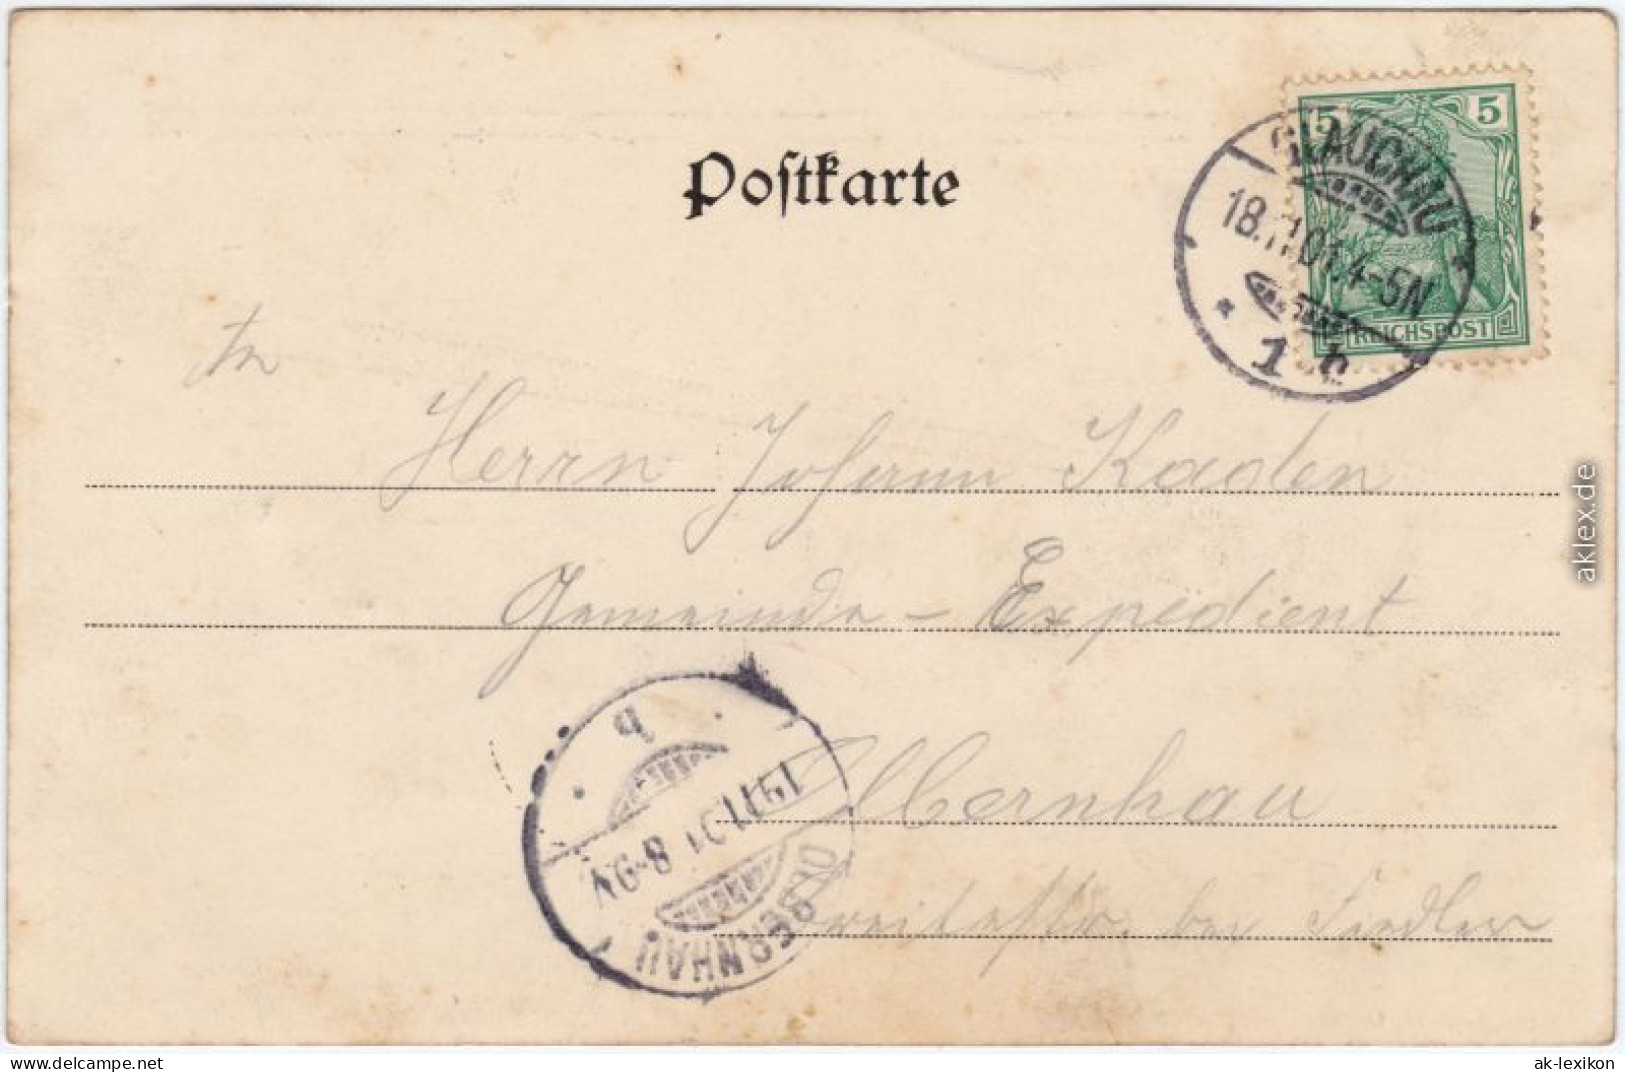 Postkarte
5 5
REICHSPOST
GLAUCHAU
18.11.01. 4-5N
* 1 b
An
Herrn Johann Kaden
Gemeinde - Expedient
Olbernhau
bei Fiedler
b
19.11.01 8-9N
OLBERNHAU
aklex.de
www.delcampe.net
ak-lexikon